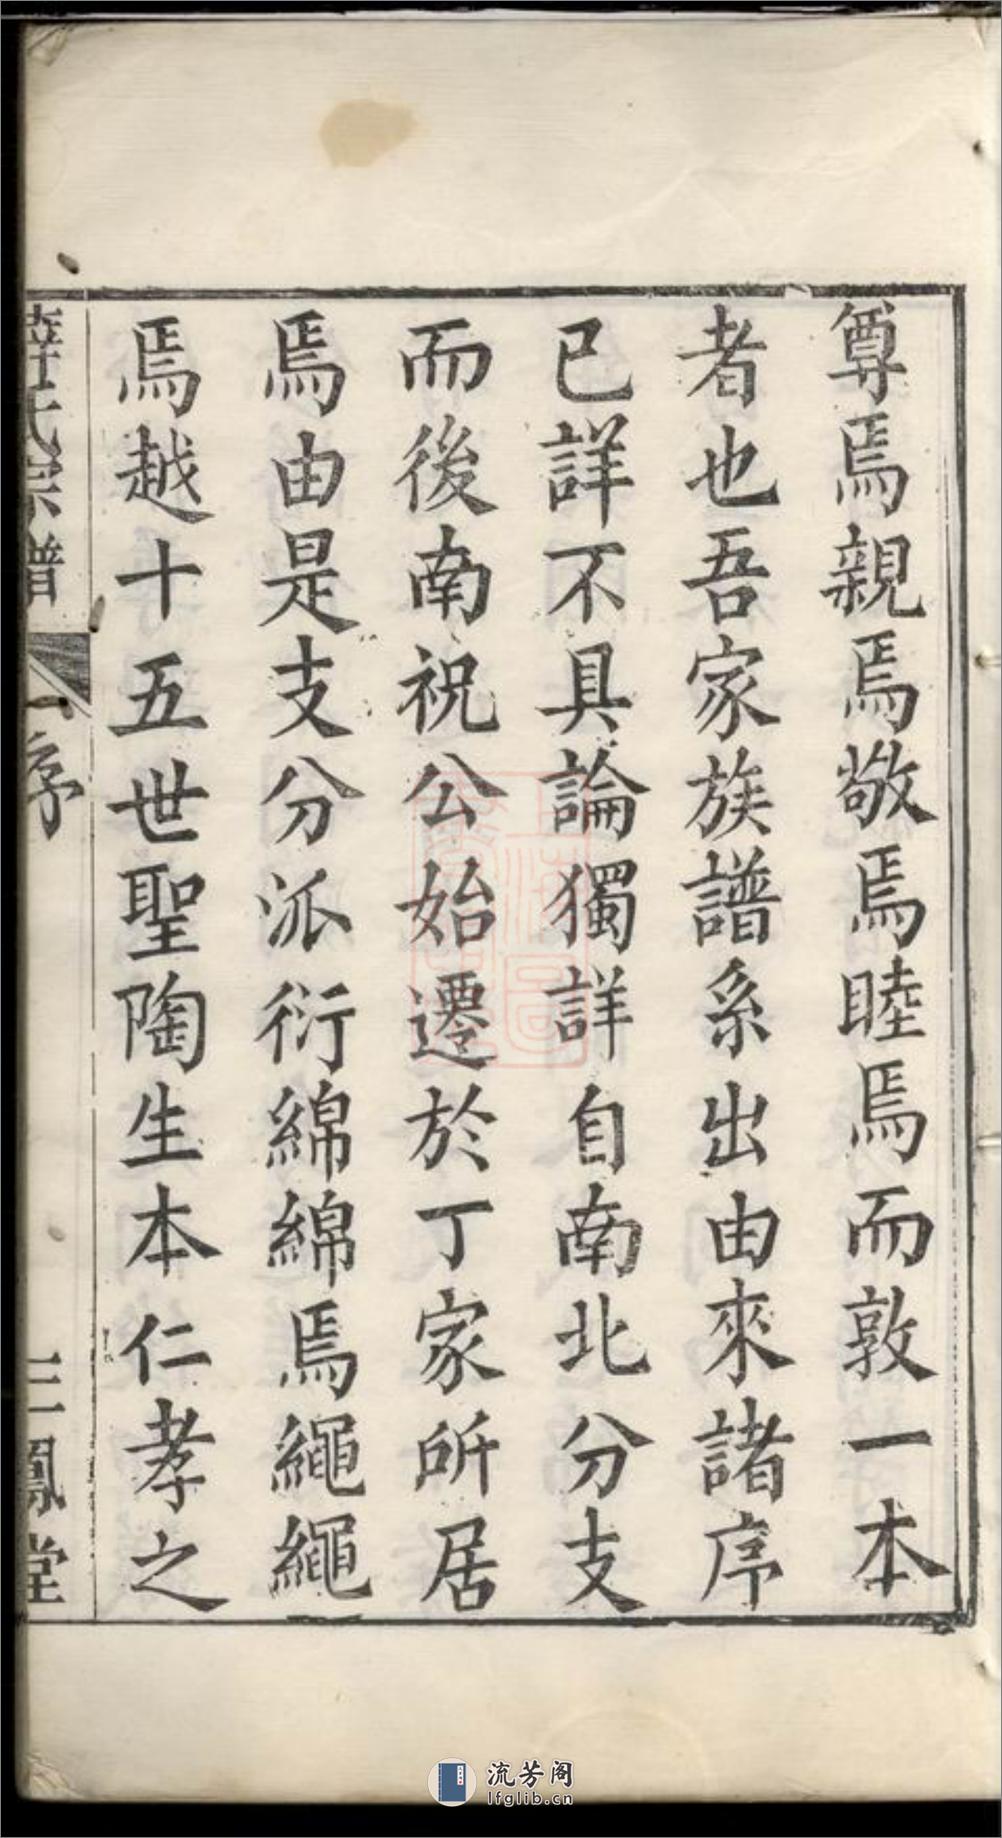 尊焉親焉敬焉睦焉而敦一本
者也吾家族譜系出由來諸序
已詳不具論獨詳自南北分支
而後南祝公始遷於丁家所居
焉由是支分派衍綿綿焉繩繩
焉越十五世聖陶生本仁孝之
薛氏宗譜
序
三鳳堂
流芳阁
lfglib.cn